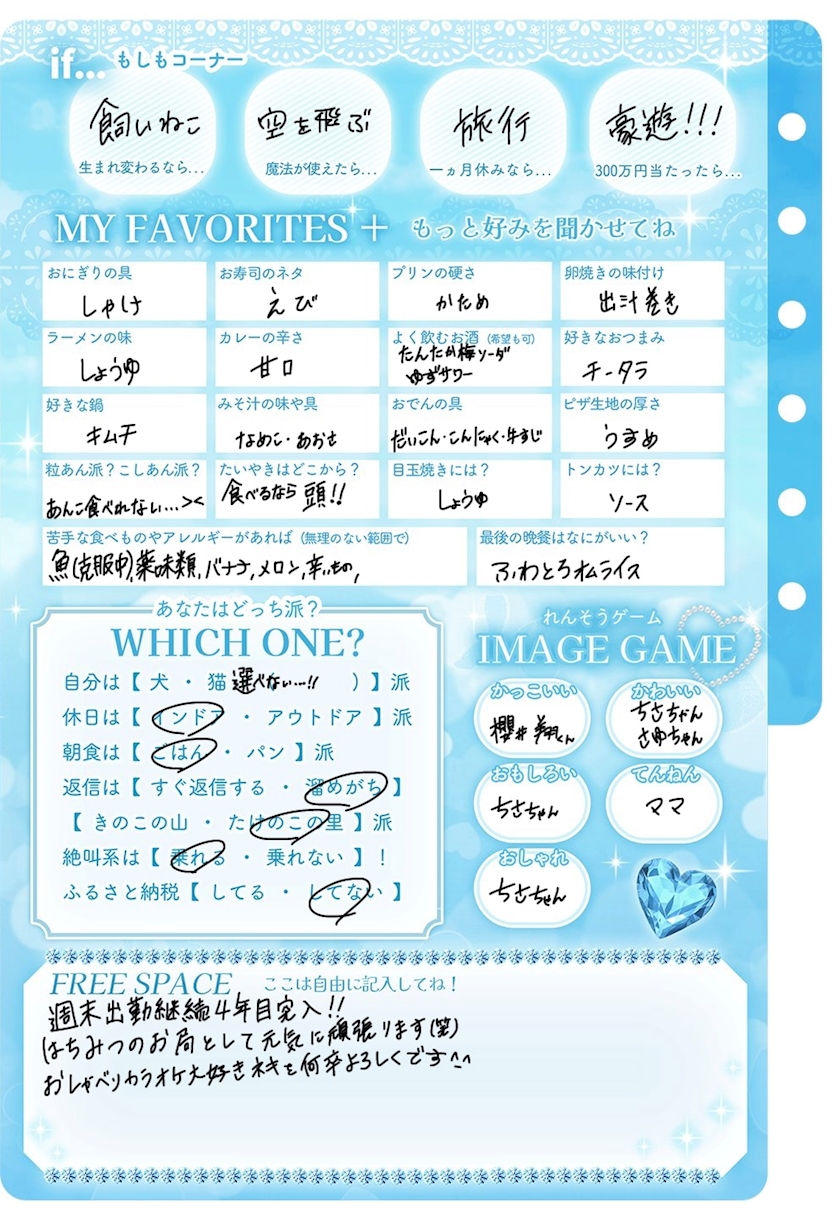 if... もしもコーナー
飼いねこ 空を飛ぶ 旅行 豪遊!!!
生まれ変わるなら... 魔法が使えたら... 一ヵ月休みなら... 300万円当たったら...
MY FAVORITES + もっと好みを聞かせてね
おにぎりの具 お寿司のネタ プリンの硬さ 卵焼きの味付け
しゃけ えび かため 出汁巻き
ラーメンの味 カレーの辛さ よく飲むお酒(希望も可) 好きなおつまみ
しょうゆ 甘口 たんたか梅ソーダ チータラ
ゆずサワー
好きな鍋 みそ汁の味や具 おでんの具 ピザ生地の厚さ
キムチ なめこ・あおさ だいこん・こんにゃく・牛すじ うすめ
粒あん派?こしあん派? たいやきはどこから? 目玉焼きには? トンカツには?
あんこ食べれない...>< 食べるなら 頭!! しょうゆ ソース
苦手な食べものやアレルギーがあれば(無理のない範囲で) 最後の晩餐はなにがいい?
魚(克服中),薬味類,バナナ,メロン,辛いもの, ふわとろオムライス
あなたはどっち派?
WHICH ONE?
自分は【 犬 ・ 猫 選べない...!! )】派
休日は【 インドア ・ アウトドア 】派
朝食は【 ごはん ・ パン 】派
返信は【 すぐ返信する ・ 溜めがち 】
【 きのこの山 ・ たけのこの里 】派
絶叫系は【 乗れる ・ 乗れない 】!
ふるさと納税【 してる ・ してない 】
れんそうゲーム
IMAGE GAME
かっこいい かわいい
櫻井 翔くん ちさちゃん
さゆちゃん
おもしろい てんねん
ちさちゃん ママ
おしゃれ
ちさちゃん
FREE SPACE ここは自由に記入してね!
週末出勤継続4年目突入!!
はちみつのお局として元気に頑張ります(笑)
おしゃべりカラオケ大好きネキを何卒よろしくです^^